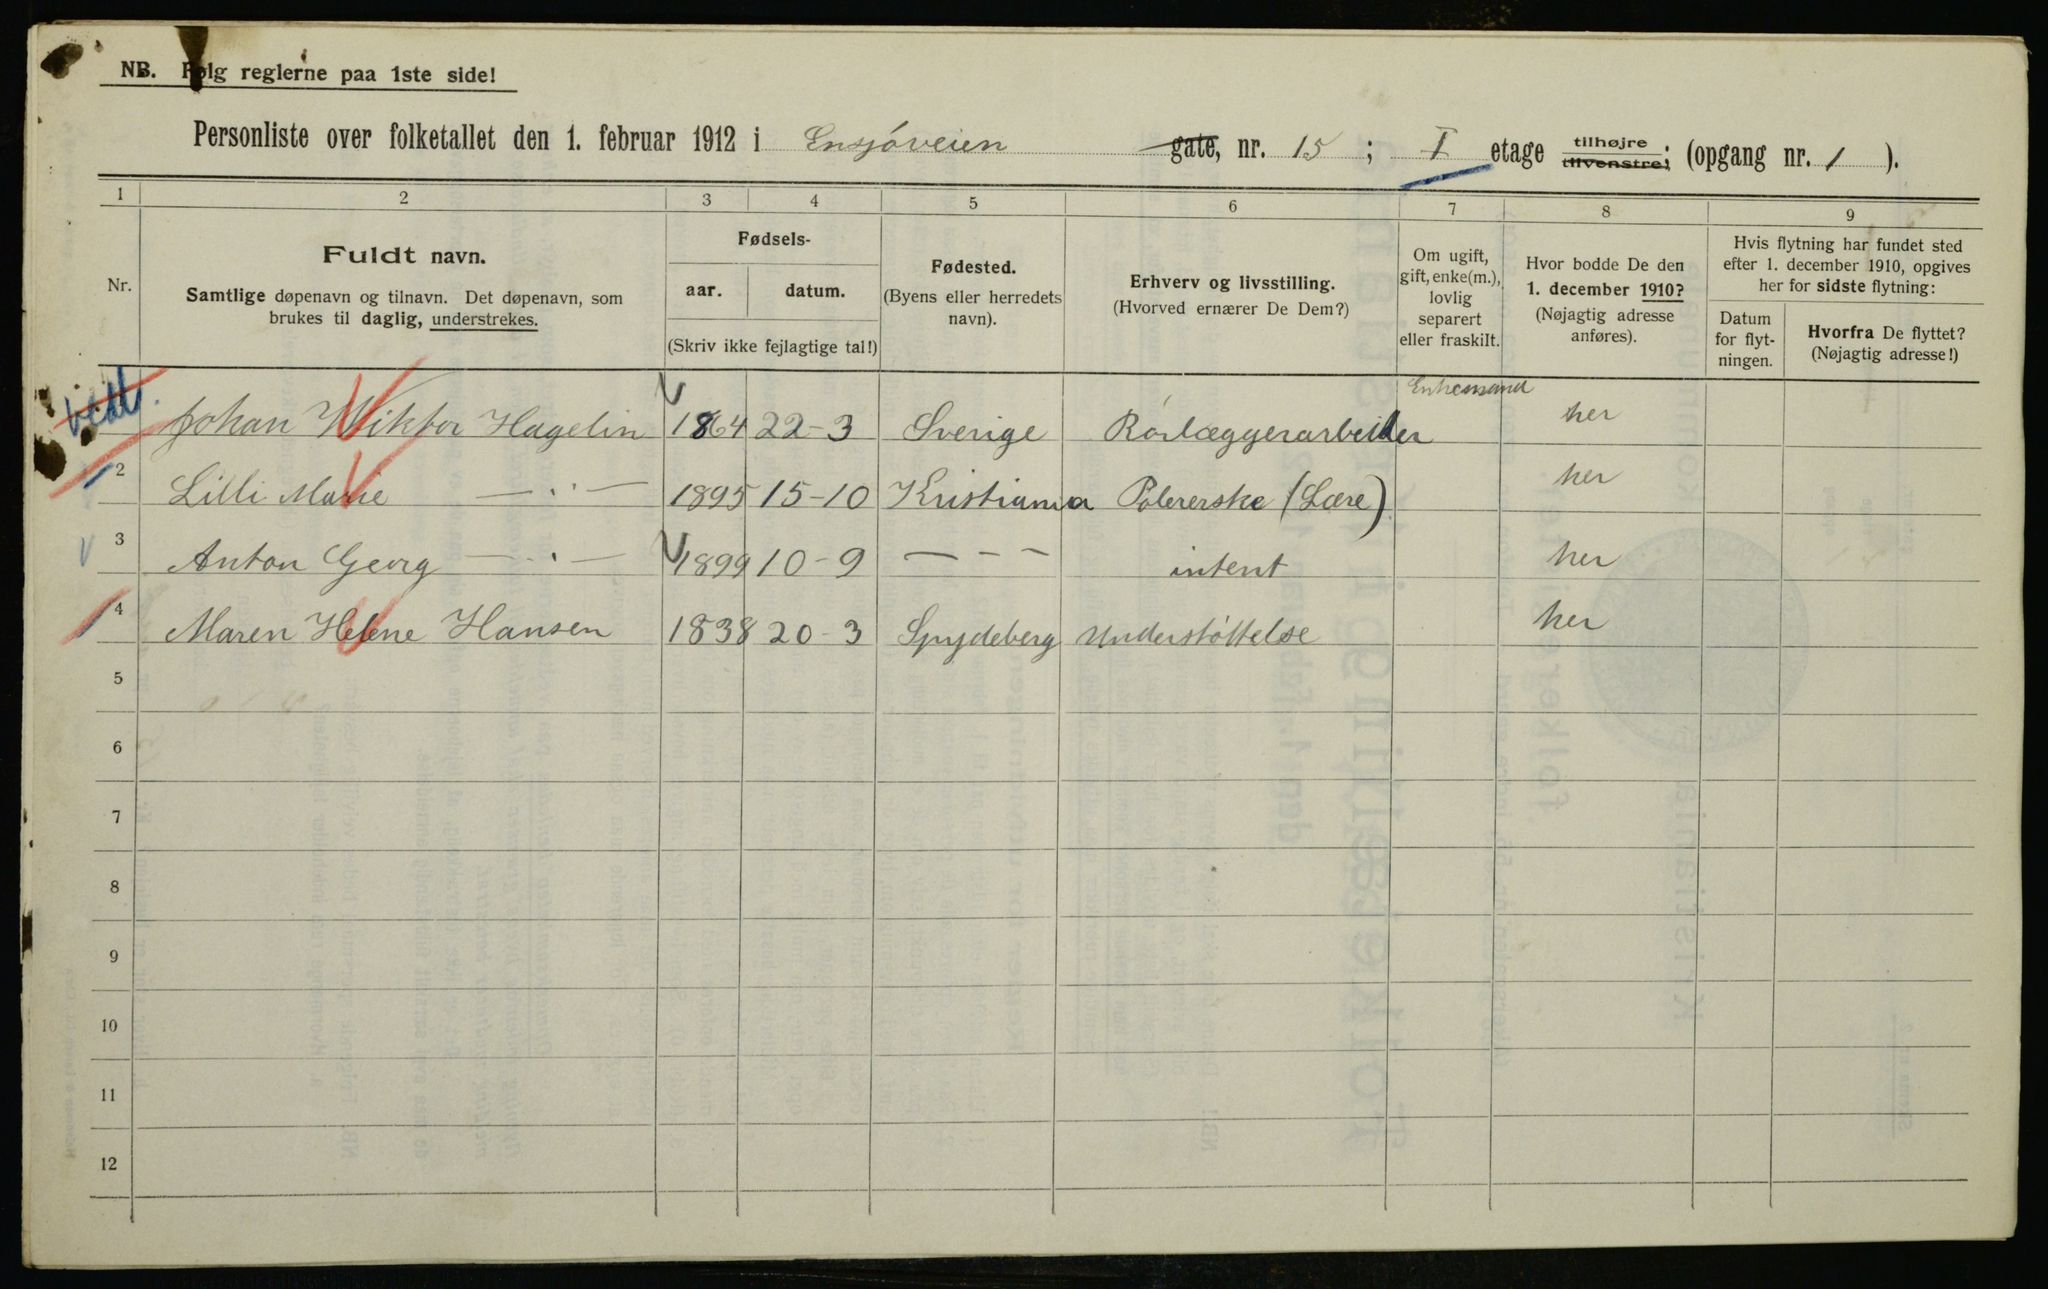 NB. Følg reglerne paa 1ste side!
Personliste over folketallet den 1. februar 1912 i Ensjøveien gate, nr. 15 ; I etage tilhøjre tilvenstre; (opgang nr. 1 ).
1 2 3 4 5 6 7 8 9
Nr.
Fuldt navn.
Samtlige døpenavn og tilnavn. Det døpenavn, som
brukes til daglig, understrekes.
Fødsels-
aar. datum.
(Skriv ikke fejlagtige tal!)
Fødested.
(Byens eller herredets
navn).
Erhverv og livsstilling.
(Hvorved ernærer De Dem?)
Om ugift,
gift, enke(m.),
lovlig
separert
eller fraskilt.
Hvor bodde De den
1. december 1910?
(Nøjagtig adresse
anføres).
Hvis flytning har fundet sted
efter 1. december 1910, opgives
her for sidste flytning:
Datum
for flyt-
ningen.
Hvorfra De flyttet?
(Nøjagtig adresse!)
Johan Wiktor Hagelin 1864 22-3 Sverige Rørlæggerarbeider Enkemand her
2 Lilli Marie —·— 1895 15-10 Kristiania Polererske (Lære) her
3 Anton Georg —·— 1899 10-9 — — — intent her
4 Maren Helene Hansen 1838 20-3 Spydeberg Understøttelse her
5
6
7
8
9
10
11
12